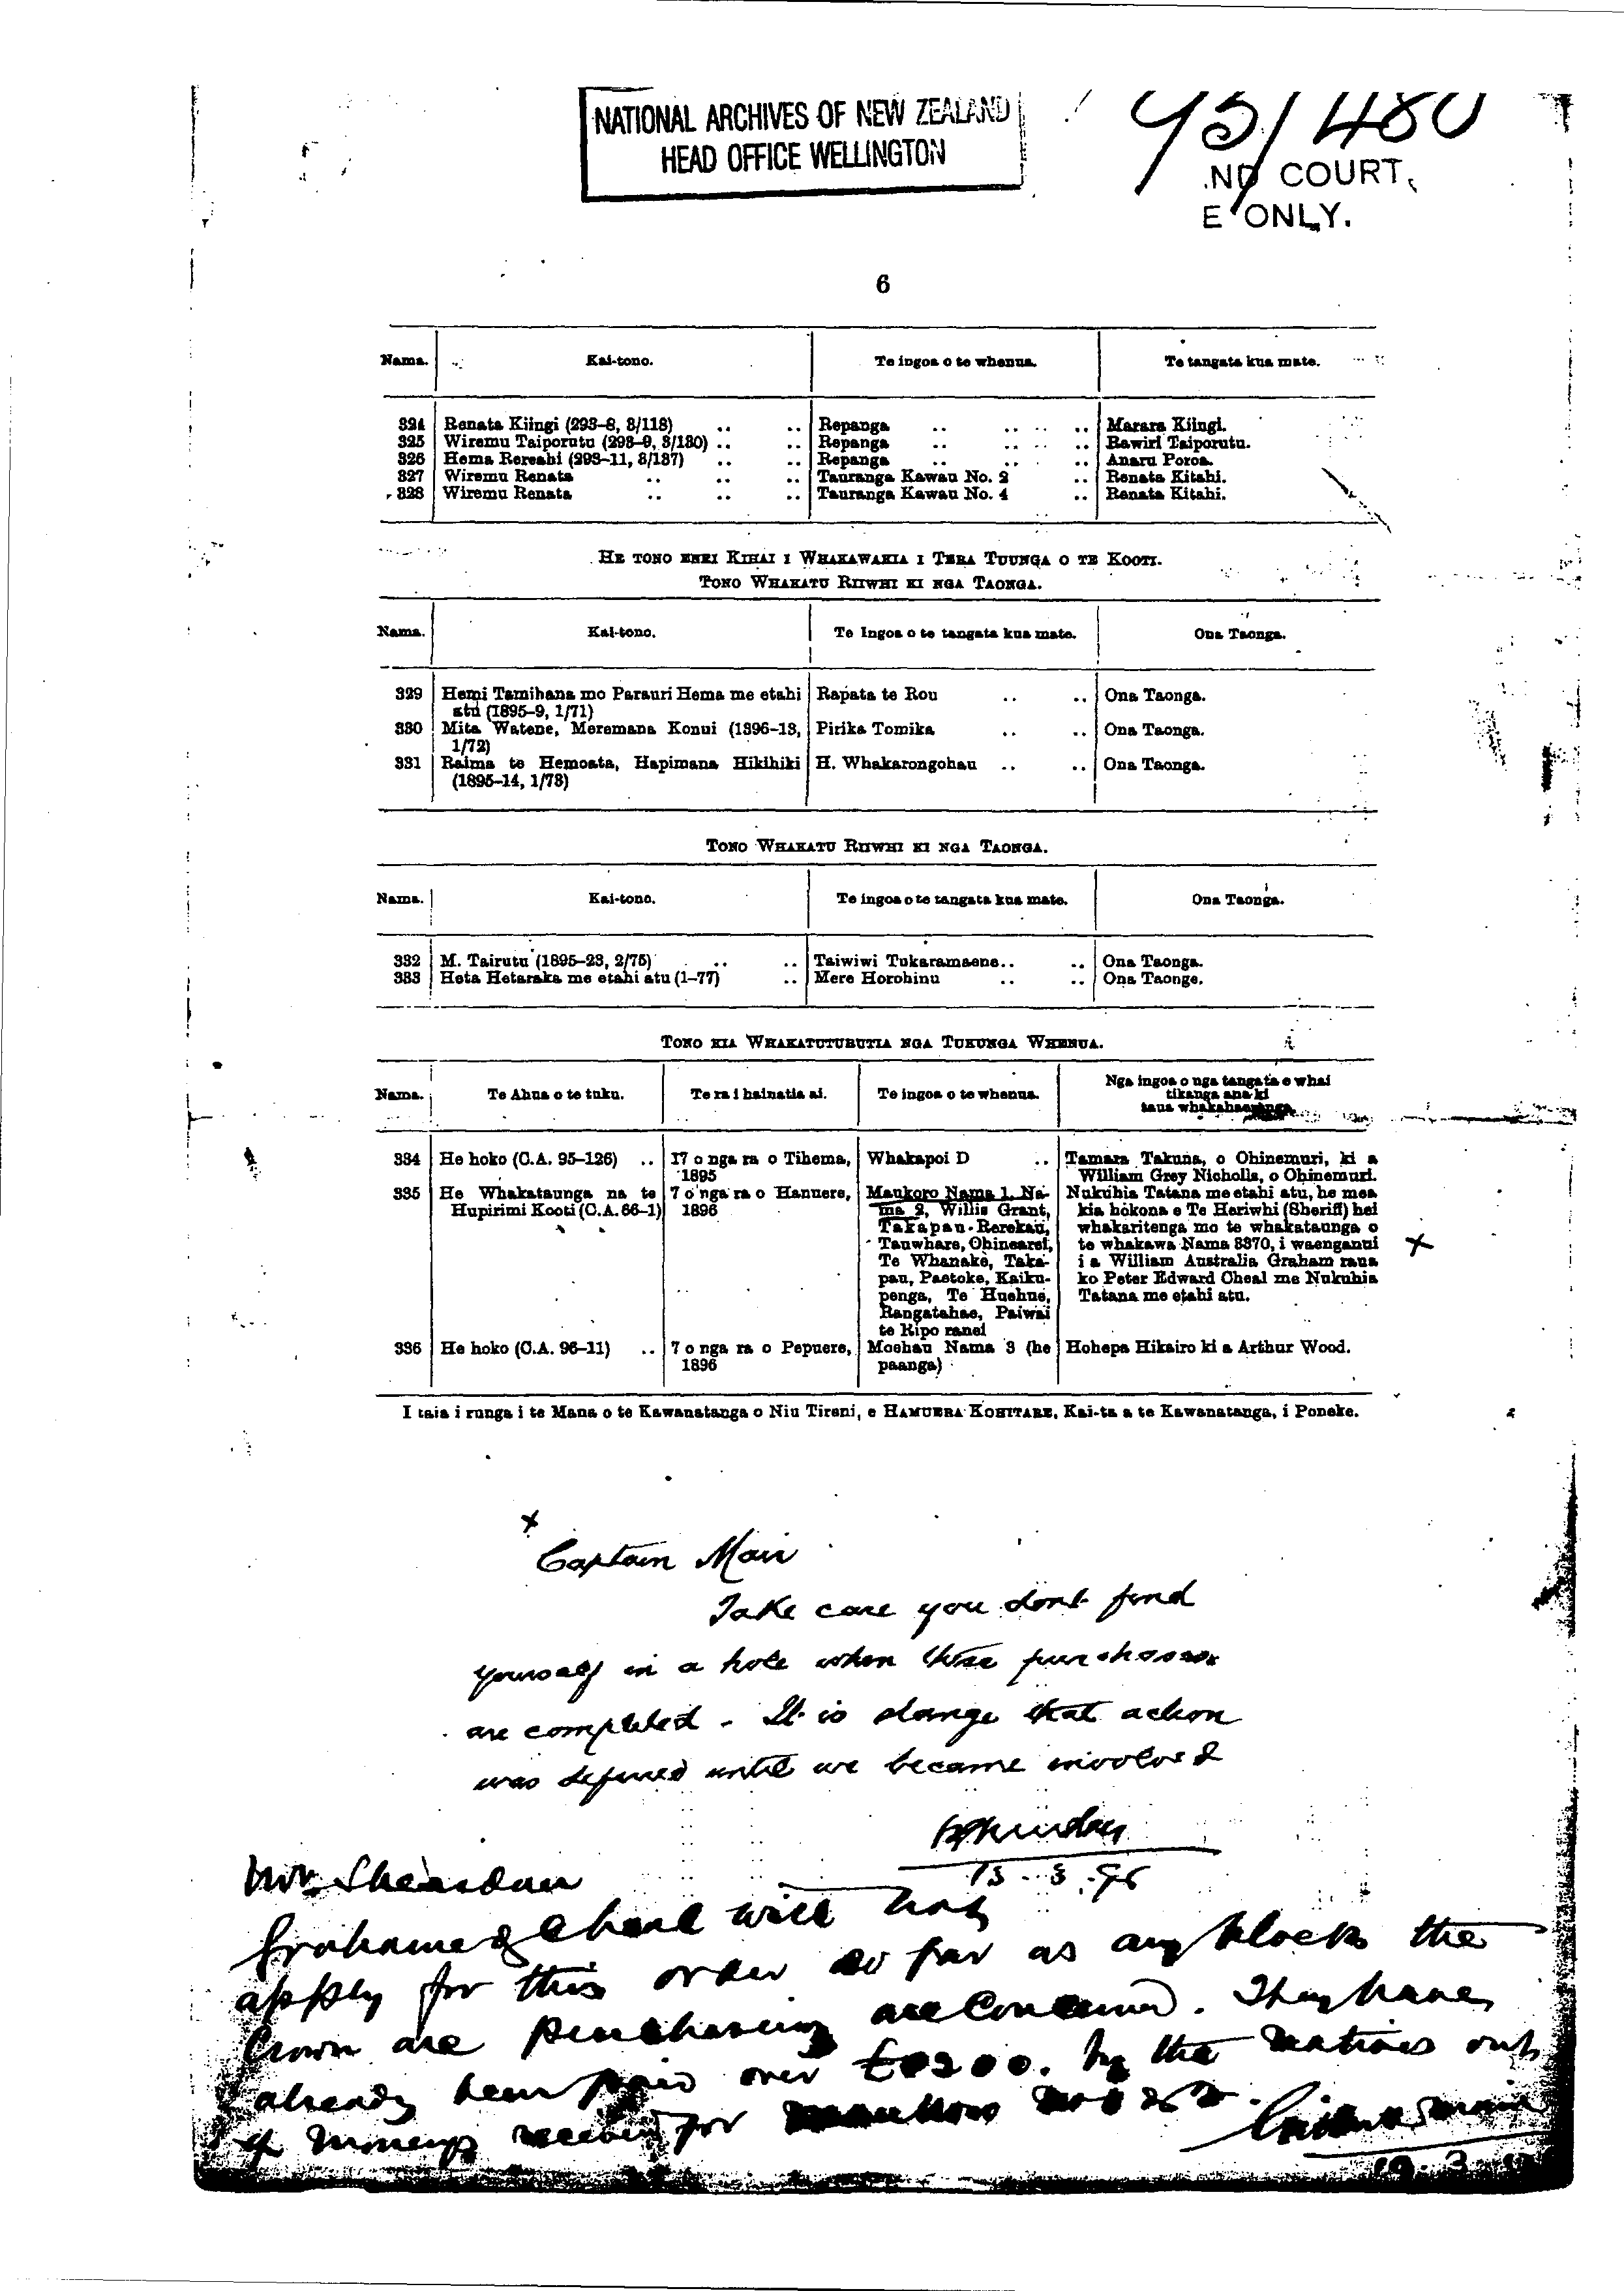 NATIONAL ARCHIVES OF NEW ZEALAND
HEAD OFFICE WELLINGTON
95/480
ND COURT,
E ONLY.
6
Nama. Kai-tono. Te ingoa o te whenua. Te tangata kua mate.
324 Renata Kiingi (293-8, 3/118) .. .. Repanga .. .. .. Marara Kiingi.
325 Wiremu Taiporutu (293-9, 3/130) .. .. Repanga .. .. .. Rawiri Taiporutu.
326 Hema Rereahi (293-11, 3/137) .. .. Repanga .. .. .. Anaru Poroa.
327 Wiremu Renata .. .. .. Tauranga Kawau No. 2 .. Renata Kitahi.
328 Wiremu Renata .. .. .. Tauranga Kawau No. 4 .. Renata Kitahi.
HE TONO ENEI KIHAI I WHAKAWAKIA I TERA TUUNGA O TE KOOTI.
TONO WHAKATU RIIWHI KI NGA TAONGA.
Nama. Kai-tono. Te Ingoa o te tangata kua mate. Ona Taonga.
329 Hemi Tamihana mo Parauri Hema me etahi Rapata te Rou .. .. Ona Taonga.
atu (1895-9, 1/71)
330 Mita Watene, Meremana Konui (1896-13, Pirika Tomika .. .. Ona Taonga.
1/72)
331 Raima te Hemoata, Hapimana Hikihiki H. Whakarongohau .. .. Ona Taonga.
(1895-14, 1/73)
TONO WHAKATU RIIWHI KI NGA TAONGA.
Nama. Kai-tono. Te ingoa o te tangata kua mate. Ona Taonga.
332 M. Tairutu (1895-23, 2/75) .. .. Taiwiwi Tukaramaene.. .. Ona Taonga.
333 Heta Hetaraka me etahi atu (1-77) .. Mere Horohinu .. .. Ona Taonge.
TONO KIA WHAKATUTURUTIA NGA TUKUNGA WHENUA.
Nama. Te Ahua o te tuku. Te ra i hainatia ai. Te ingoa o te whenua. Nga ingoa o nga tangata e whai
tikanga ana ki
taua whakahaerenga.
334 He hoko (C.A. 95-126) .. 17 o nga ra o Tihema, Whakapoi D .. Tamara Takuna, o Ohinemuri, ki a
1895 William Grey Nicholls, o Ohinemuri.
335 He Whakataunga na te 7 o nga ra o Hanuere, Maukoro Nama 1, Na- Nukuhia Tatana me etahi atu, he mea
Hupirimi Kooti (C.A. 66-1) 1896 ma 2, Willis Grant, kia hokona e Te Heriwhi (Sheriff) hei
Takapau-Rerekau, whakaritenga mo te whakataunga o
Tauwhare, Ohinearei, te whakawa Nama 3370, i waenganui
Te Whanake, Taka- i a William Australia Graham raua
pau, Paetoke, Kaiku- ko Peter Edward Cheal me Nukuhia
penga, Te Huehue, Tatana me etahi atu.
Rangatahae, Paiwai
te Ripo ranei
336 He hoko (C.A. 96-11) .. 7 o nga ra o Pepuere, Moehau Nama 3 (he Hohepa Hikairo ki a Arthur Wood.
1896 paanga)
I taia i runga i te Mana o te Kawanatanga o Niu Tireni, e HAMUERA KOHITARE, Kai-ta a te Kawanatanga, i Poneke.
x
Captain Mair
Take care you dont find
yourself in a hole when these purchases
are completed - It is strange that action
was deferred until we became involved
13-3-96
Mr. Sheridan
Grahame & Cheal will not
apply for this order so far as any blocks the
Crown are purchasing are concerned. They have
already been paid over by the natives out
of moneys received for